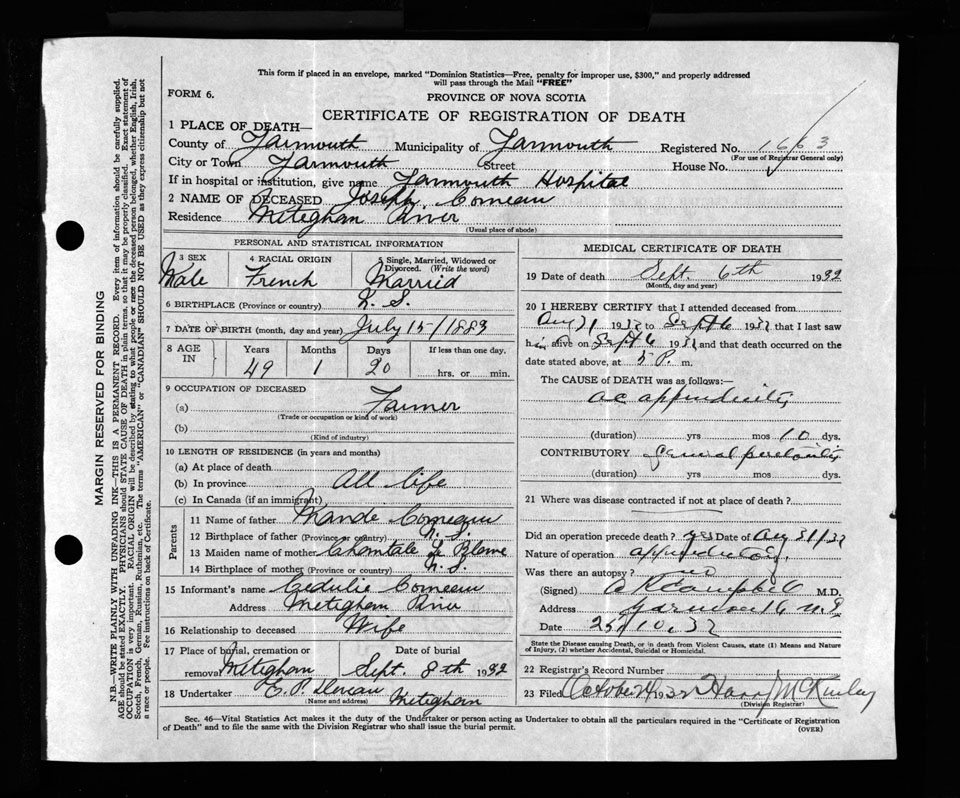 This form if placed in an envelope, marked "Dominion Statistics—Free, penalty for improper use, $300," and properly addressed
will pass through the Mail "FREE"
FORM 6.
PROVINCE OF NOVA SCOTIA
CERTIFICATE OF REGISTRATION OF DEATH
1 PLACE OF DEATH—
County of Yarmouth Municipality of Yarmouth Registered No. 1663
(For use of Registrar General only)
City or Town Yarmouth Street House No.
If in hospital or institution, give name Yarmouth Hospital
2 NAME OF DECEASED Joseph Comeau
Residence Meteghan River
(Usual place of abode)
PERSONAL AND STATISTICAL INFORMATION
3 SEX 4 RACIAL ORIGIN 5 Single, Married, Widowed or Divorced. (Write the word)
Male French Married
6 BIRTHPLACE (Province or country) N. S.
7 DATE OF BIRTH (month, day and year) July 15/1883
8 AGE IN Years Months Days If less than one day.
49 1 20 hrs. or min.
9 OCCUPATION OF DECEASED
(a) Farmer
(Trade or occupation or kind of work)
(b)
(Kind of industry)
10 LENGTH OF RESIDENCE (in years and months)
(a) At place of death
(b) In province All life
(c) In Canada (if an immigrant)
Parents
11 Name of father Mande Comeau
12 Birthplace of father (Province or country) N. S.
13 Maiden name of mother Le Blanc
14 Birthplace of mother (Province or country) N. S.
15 Informant's name Comeau
Address Meteghan River
16 Relationship to deceased Wife
17 Place of burial, cremation or removal Date of burial
Meteghan Sept. 8th 1932
18 Undertaker E. P.
(Name and address) Meteghan
MEDICAL CERTIFICATE OF DEATH
19 Date of death Sept. 6th 1932
(Month, day and year)
20 I HEREBY CERTIFY that I attended deceased from
Aug 31 1932 to Sept 6 1932 that I last saw
him alive on Sept 6 1932 and that death occurred on the
date stated above, at 5 P. m.
The CAUSE of DEATH was as follows:—
ac appendicitis
(duration) yrs mos 10 dys.
CONTRIBUTORY general peritonitis
(duration) yrs mos dys.
21 Where was disease contracted if not at place of death?
Did an operation precede death? yes Date of Aug 31/32
Nature of operation
Was there an autopsy? no
(Signed) Campbell M.D.
Address Yarmouth N S
Date 25/10/32
State the Disease causing Death, or in death from Violent Causes, state (1) Means and Nature of Injury, (2) whether Accidental, Suicidal or Homicidal.
22 Registrar's Record Number
23 Filed October 1932 Harry McKinley
(Division Registrar)
Sec. 46—Vital Statistics Act makes it the duty of the Undertaker or person acting as Undertaker to obtain all the particulars required in the "Certificate of Registration
of Death" and to file the same with the Division Registrar who shall issue the burial permit.
(OVER)
MARGIN RESERVED FOR BINDING
N.B.—WRITE PLAINLY WITH UNFADING INK—THIS IS A PERMANENT RECORD. Every item of information should be carefully supplied.
AGE should be stated EXACTLY. PHYSICIANS should STATE CAUSE OF DEATH in plain terms, so that it may be properly classified. Exact statement of
OCCUPATION is very important. RACIAL ORIGIN will be described by stating to what people or race the deceased person belonged, whether English, Irish,
Scotch, French, German, Russian, Ruthenian, etc. The terms "AMERICAN" or "CANADIAN" SHOULD NOT BE USED as they express citizenship but not
a race or people. See instructions on back of Certificate.